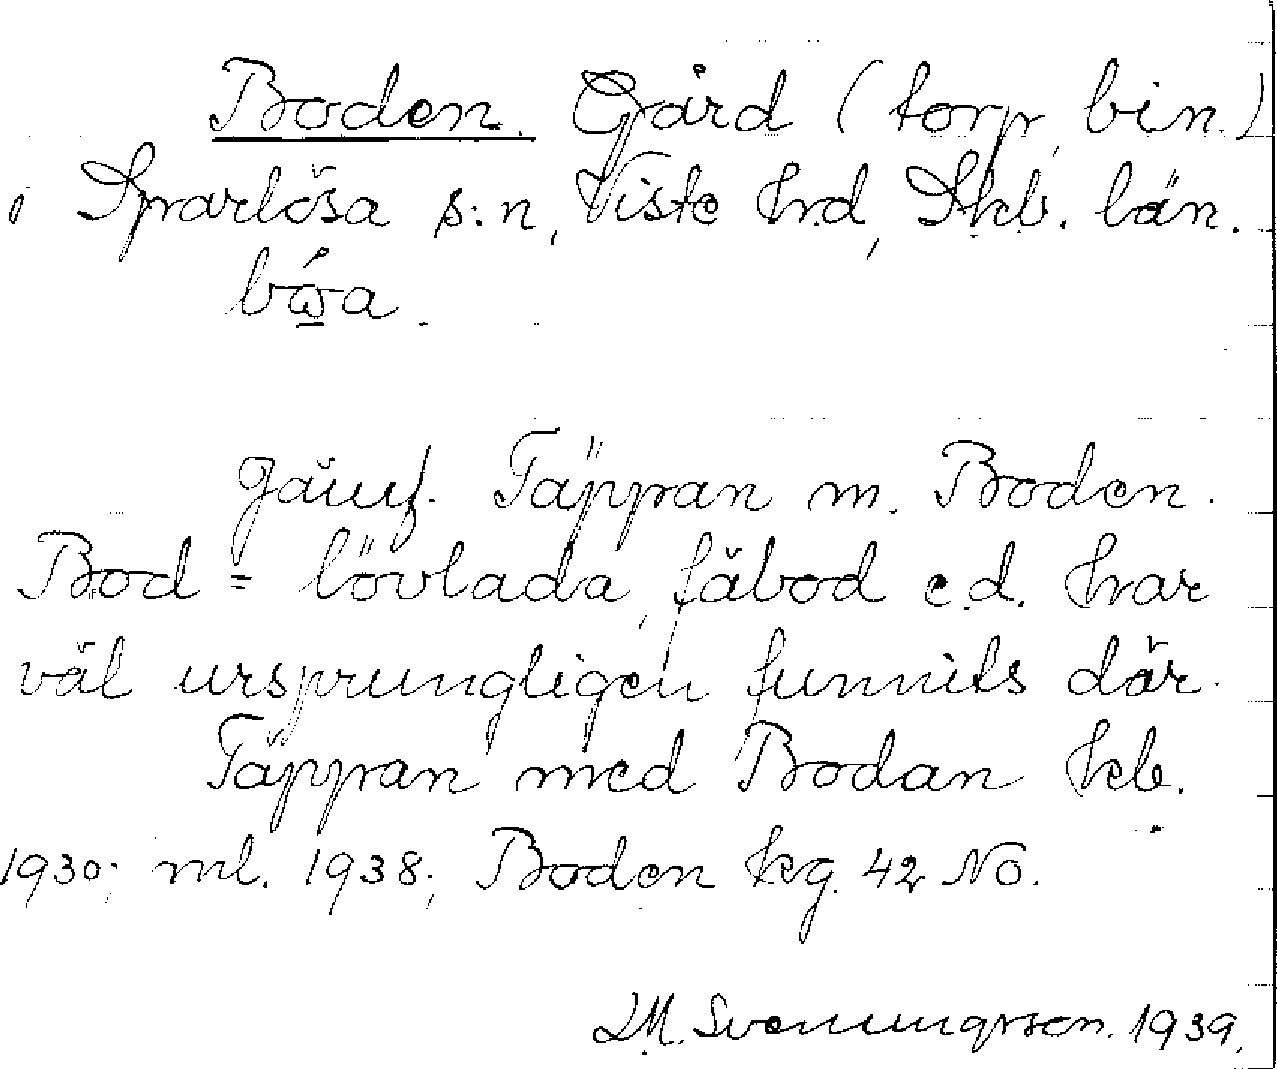 Boden. Gård (torp, bin.)
i Sparlösa s:n, Viste hrd, Skb. län.
Jämf. Täppan m. Boden.
Bod = lövlada, fäbod e.d. har
väl ursprungligen funnits där.
Täppan med Bodan
1930; ml. 1938; Boden kg. 42 NO.
Svenungsson. 1939.